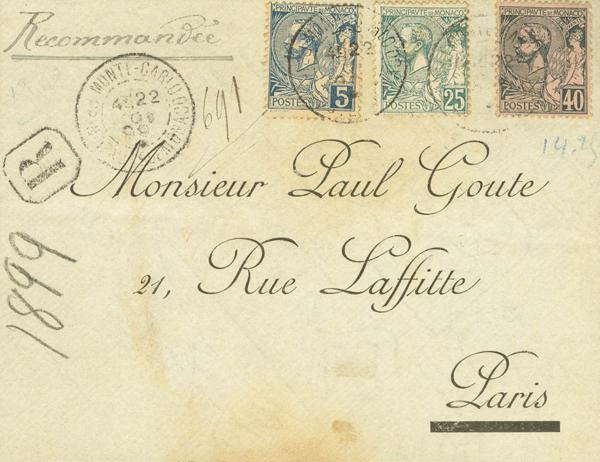 Recommandée
PRINCIPAUTÉ DE MONACO
POSTES 5
PRINCIPAUTÉ DE MONACO
POSTES 25
PRINCIPAUTÉ DE MONACO
POSTES 40
MONTE-CARLO
22
691
R
14.25
Monsieur Paul Goute
21, Rue Laffitte
Paris
1899